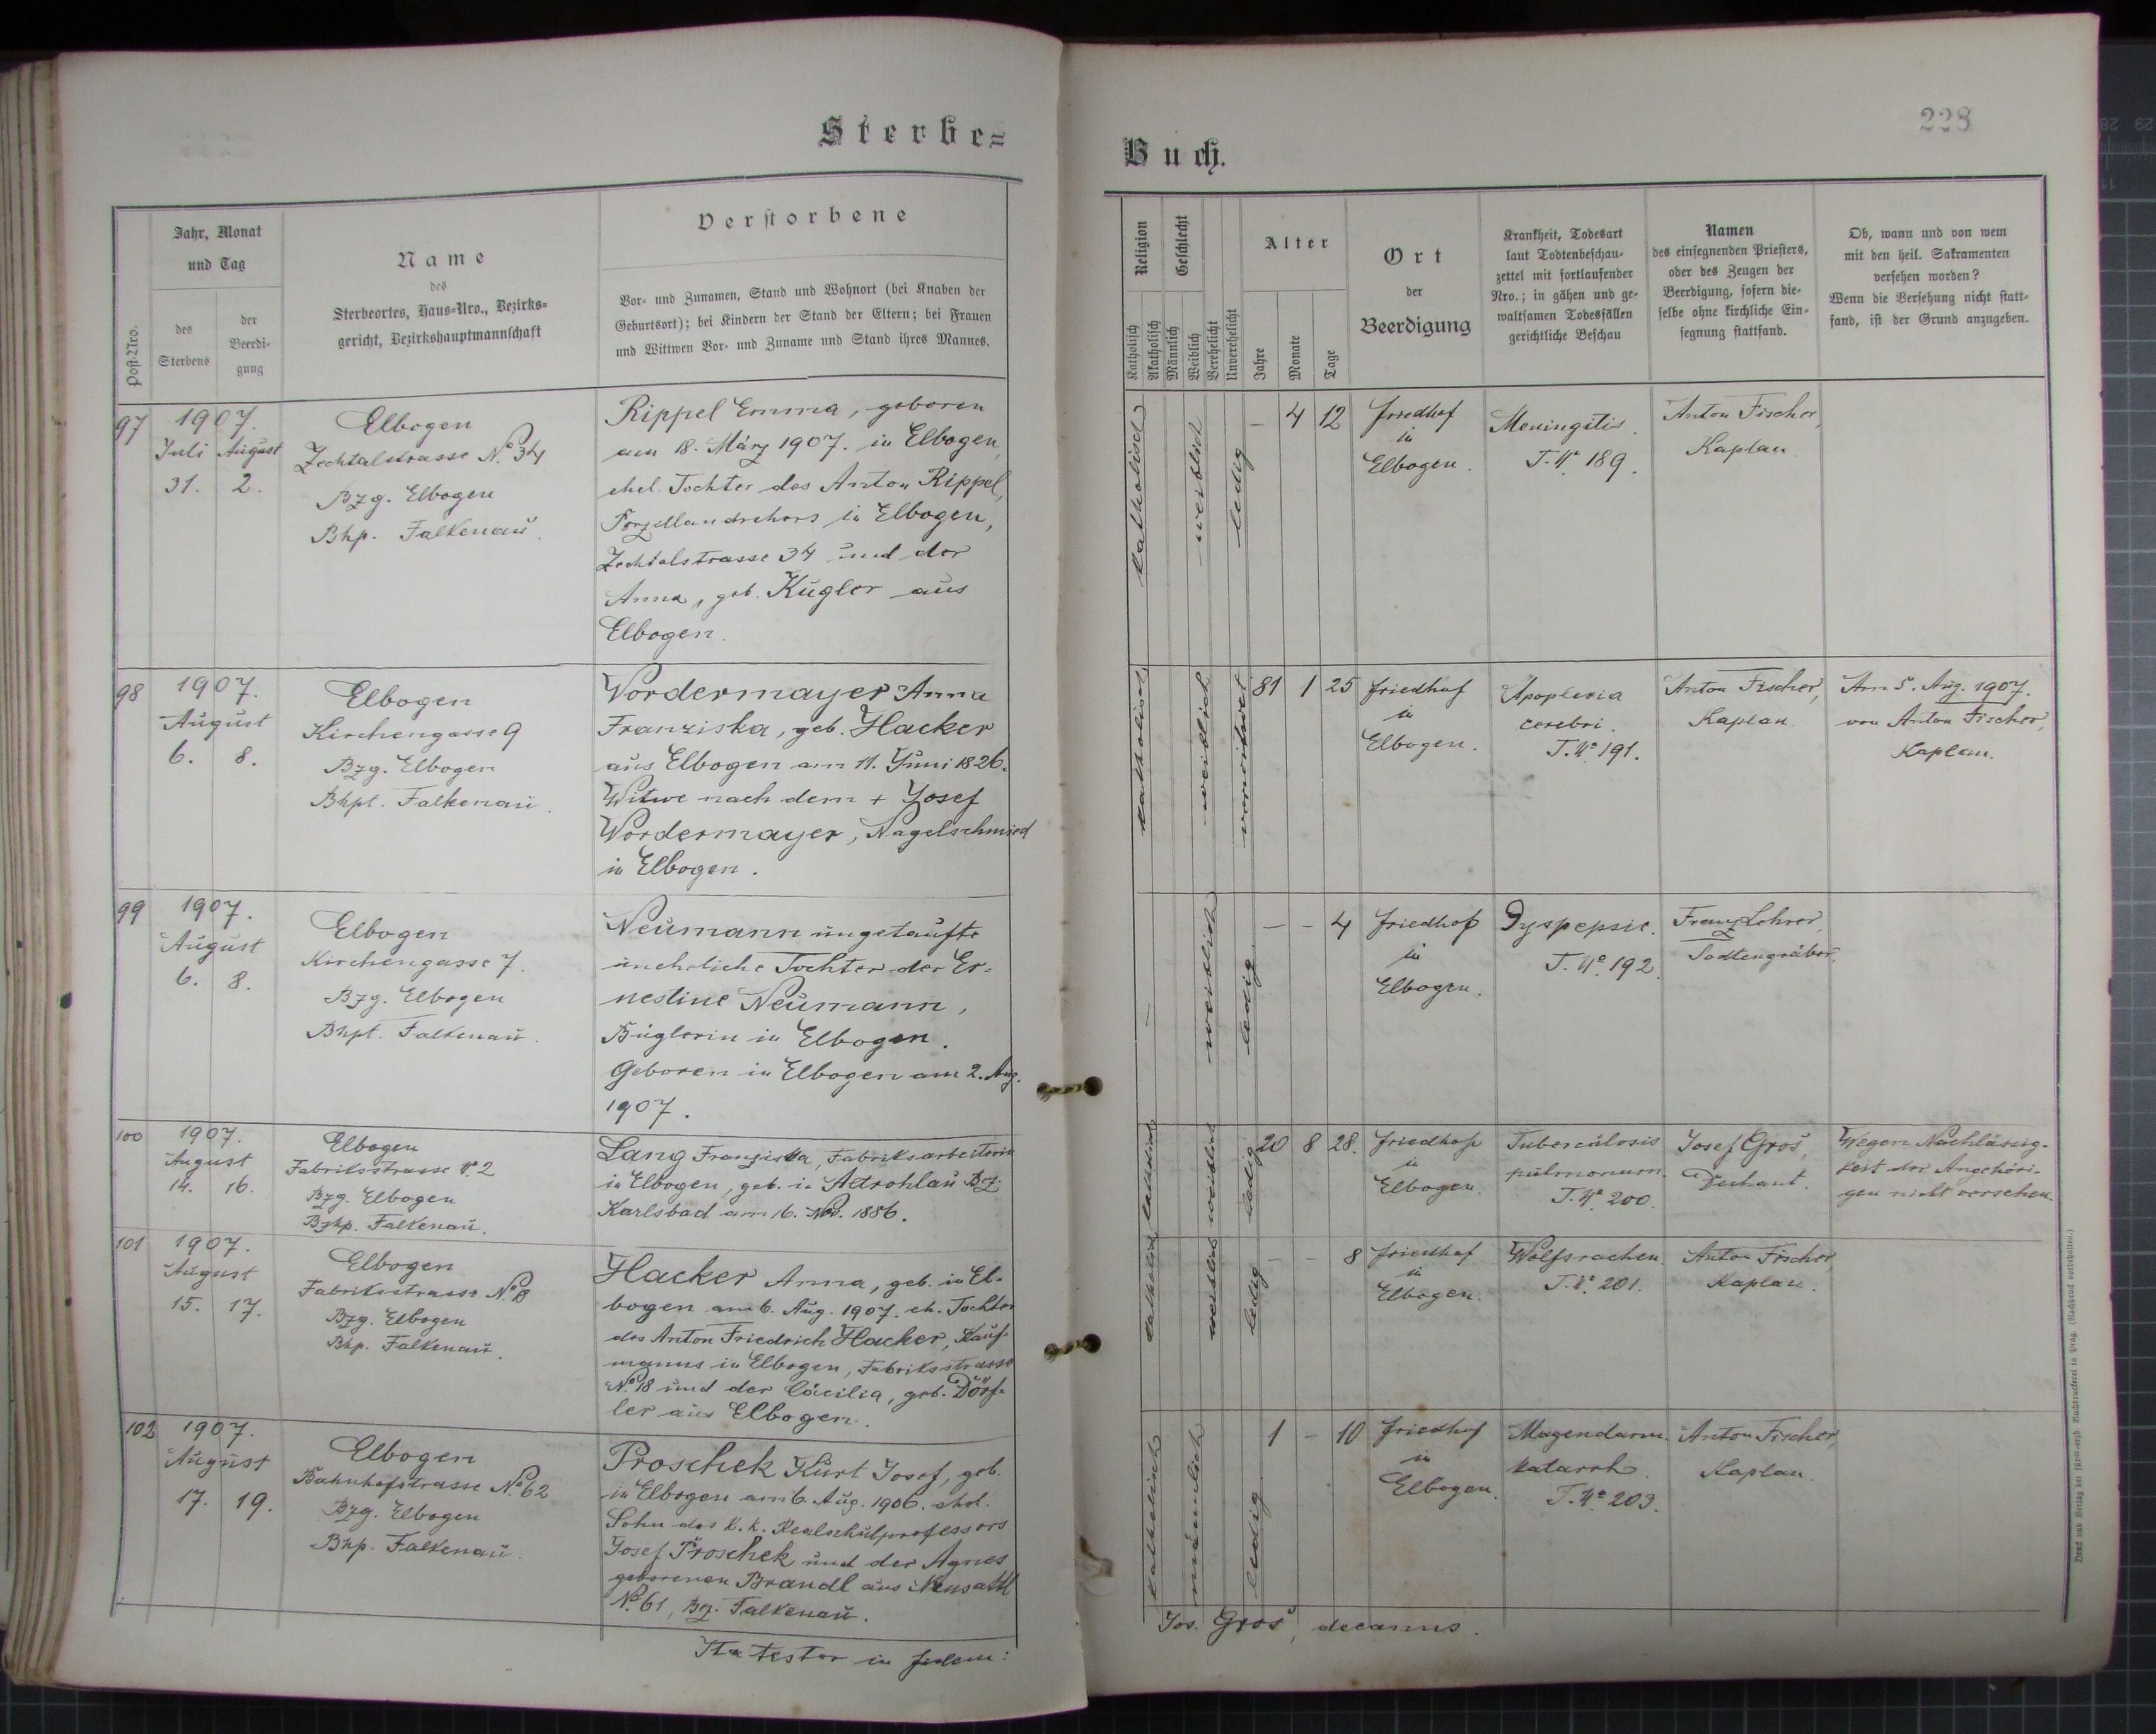 Sterbe=
Jahr, Monat
und Tag
Post-Nro.
des
Sterbens
der
Beerdi-
gung
Name
des
Sterbeortes, Haus-Nro., Bezirks=
gericht, Bezirkshauptmannschaft
Verstorbene
Vor- und Zunamen, Stand und Wohnort (bei Knaben der
Geburtsort); bei Kindern der Stand der Eltern; bei Frauen
und Wittwen Vor- und Zuname und Stand ihres Mannes.
97
1907.
Juli August
31. 2.
Elbogen
Zechtalstrasse No. 34
Bzg. Elbogen
Bhp. Falkenau.
Rippel Emma, geboren
am 18. März 1907. in Elbogen,
ehel. Tochter des Anton Rippel,
Porzellandrehers in Elbogen,
Zechtalstrasse 34 und der
Anna, geb. Kugler aus
Elbogen.
98
1907.
August
6. 8.
Elbogen
Kirchengasse 9
Bzg. Elbogen
Bhpt. Falkenau.
Vordermayer Anna
Franziska, geb. Hacker
aus Elbogen am 11. Juni 1826.
Witwe nach dem + Josef
Vordermayer, Nagelschmied
in Elbogen.
99
1907.
August
6. 8.
Elbogen
Kirchengasse 7.
Bzg. Elbogen
Bhpt. Falkenau.
Neumann ungetaufte
uneheliche Tochter der Er=
nestine Neumann,
Büglerin in Elbogen.
Geboren in Elbogen am 2. Aug.
1907.
100
1907.
August
14. 16.
Elbogen
Fabriksstrasse No. 2
Bzg. Elbogen
Bzhp. Falkenau.
Lang Franziska, Fabriksarbeiterin
in Elbogen, geb. in Altrohlau Bez.
Karlsbad am 16. Nov. 1886.
101
1907.
August
15. 17.
Elbogen
Fabriksstrasse No. 18
Bzg. Elbogen
Bhp. Falkenau.
Hacker Anna, geb. in El-
bogen am 6. Aug. 1907. eh. Tochter
des Anton Friedrich Hacker, Kauf-
manns in Elbogen, Fabriksstrasse
No. 18 und der Cäcilia, geb. Dörf-
ler aus Elbogen.
102
1907.
August
17. 19.
Elbogen
Bahnhofstrasse No. 62
Bzg. Elbogen
Bhp. Falkenau.
Proschek Kurt Josef, geb.
in Elbogen am 6. Aug. 1906. ehel.
Sohn des k. k. Realschulprofessors
Josef Proschek und der Agnes
geborenen Brandl aus Neusattl
No. 61, Bez. Falkenau.
Ita testor in fidem:
228
Buch.
Religion
Katholisch
Akatholisch
Geschlecht
Männlich
Weiblich
Verehelicht
Unverehelicht
Alter
Jahre
Monate
Tage
Ort
der
Beerdigung
Krankheit, Todesart
laut Todtenbeschau-
zettel mit fortlaufender
Nro.; in gähen und ge-
waltsamen Todesfällen
gerichtliche Beschau
Namen
des einsegnenden Priesters,
oder des Zeugen der
Beerdigung, sofern die-
selbe ohne kirchliche Ein-
segnung stattfand.
Ob, wann und von wem
mit den heil. Sakramenten
versehen worden?
Wenn die Versehung nicht statt-
fand, ist der Grund anzugeben.
katholisch
weiblich
ledig
- 4 12
Friedhof
in
Elbogen.
Meningitis.
T. No. 189.
Anton Fischer,
Kaplan
katholisch
weiblich
verwitwet
81 1 25
Friedhof
in
Elbogen.
Apoplexia
cerebri.
T. No. 191.
Anton Fischer,
Kaplan
Am 5. Aug. 1907.
von Anton Fischer,
Kaplan.
-
weiblich
ledig
- - 4
Friedhof
in
Elbogen.
Dyspepsie.
T. No. 192.
Franz Lehrer,
Todtengräber.
katholisch
weiblich
ledig
20 8 28.
Friedhof
in
Elbogen.
Tuberculosis
pulmonum.
T. No. 200.
Josef Gros,
Dechant.
Wegen Nachlässig-
keit der Angehöri-
gen nicht versehen.
katholisch
weiblich
ledig
- - 8
Friedhof
in
Elbogen.
Wolfsrachen.
T. No. 201.
Anton Fischer,
Kaplan.
katholisch
männlich
ledig
1 - 10
Friedhof
in
Elbogen.
Magendarm-
katarrh.
T. No. 203.
Anton Fischer,
Kaplan.
Jos. Gros, decanus.
Druck und Verlag der fürst-erzb. Buchdruckerei in Prag. (Nachdruck vorbehalten.)